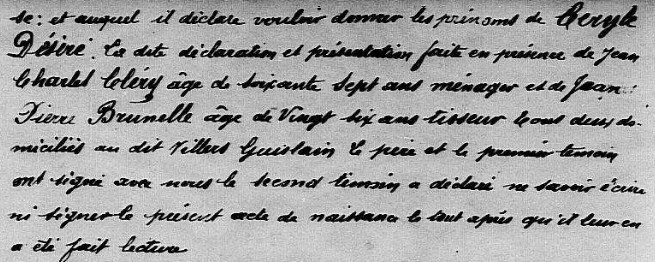 se; et auquel il déclare vouloir donner les prénoms de Ceryle
Désiré. La dite déclaration et présentation faite en présence de Jean
Charles Cléry âge de soixante sept ans ménager et de Jean
Pierre Brunelle âge de Vingt six ans tisseur tous deux do-
miciliés au dit Villers Guislain le père et le premier temoin
ont signé avec nous le second temoin a déclaré ne savoir écrire
ni signer le présent acte de naissance le tout après qu'il leur en
a été fait lecture